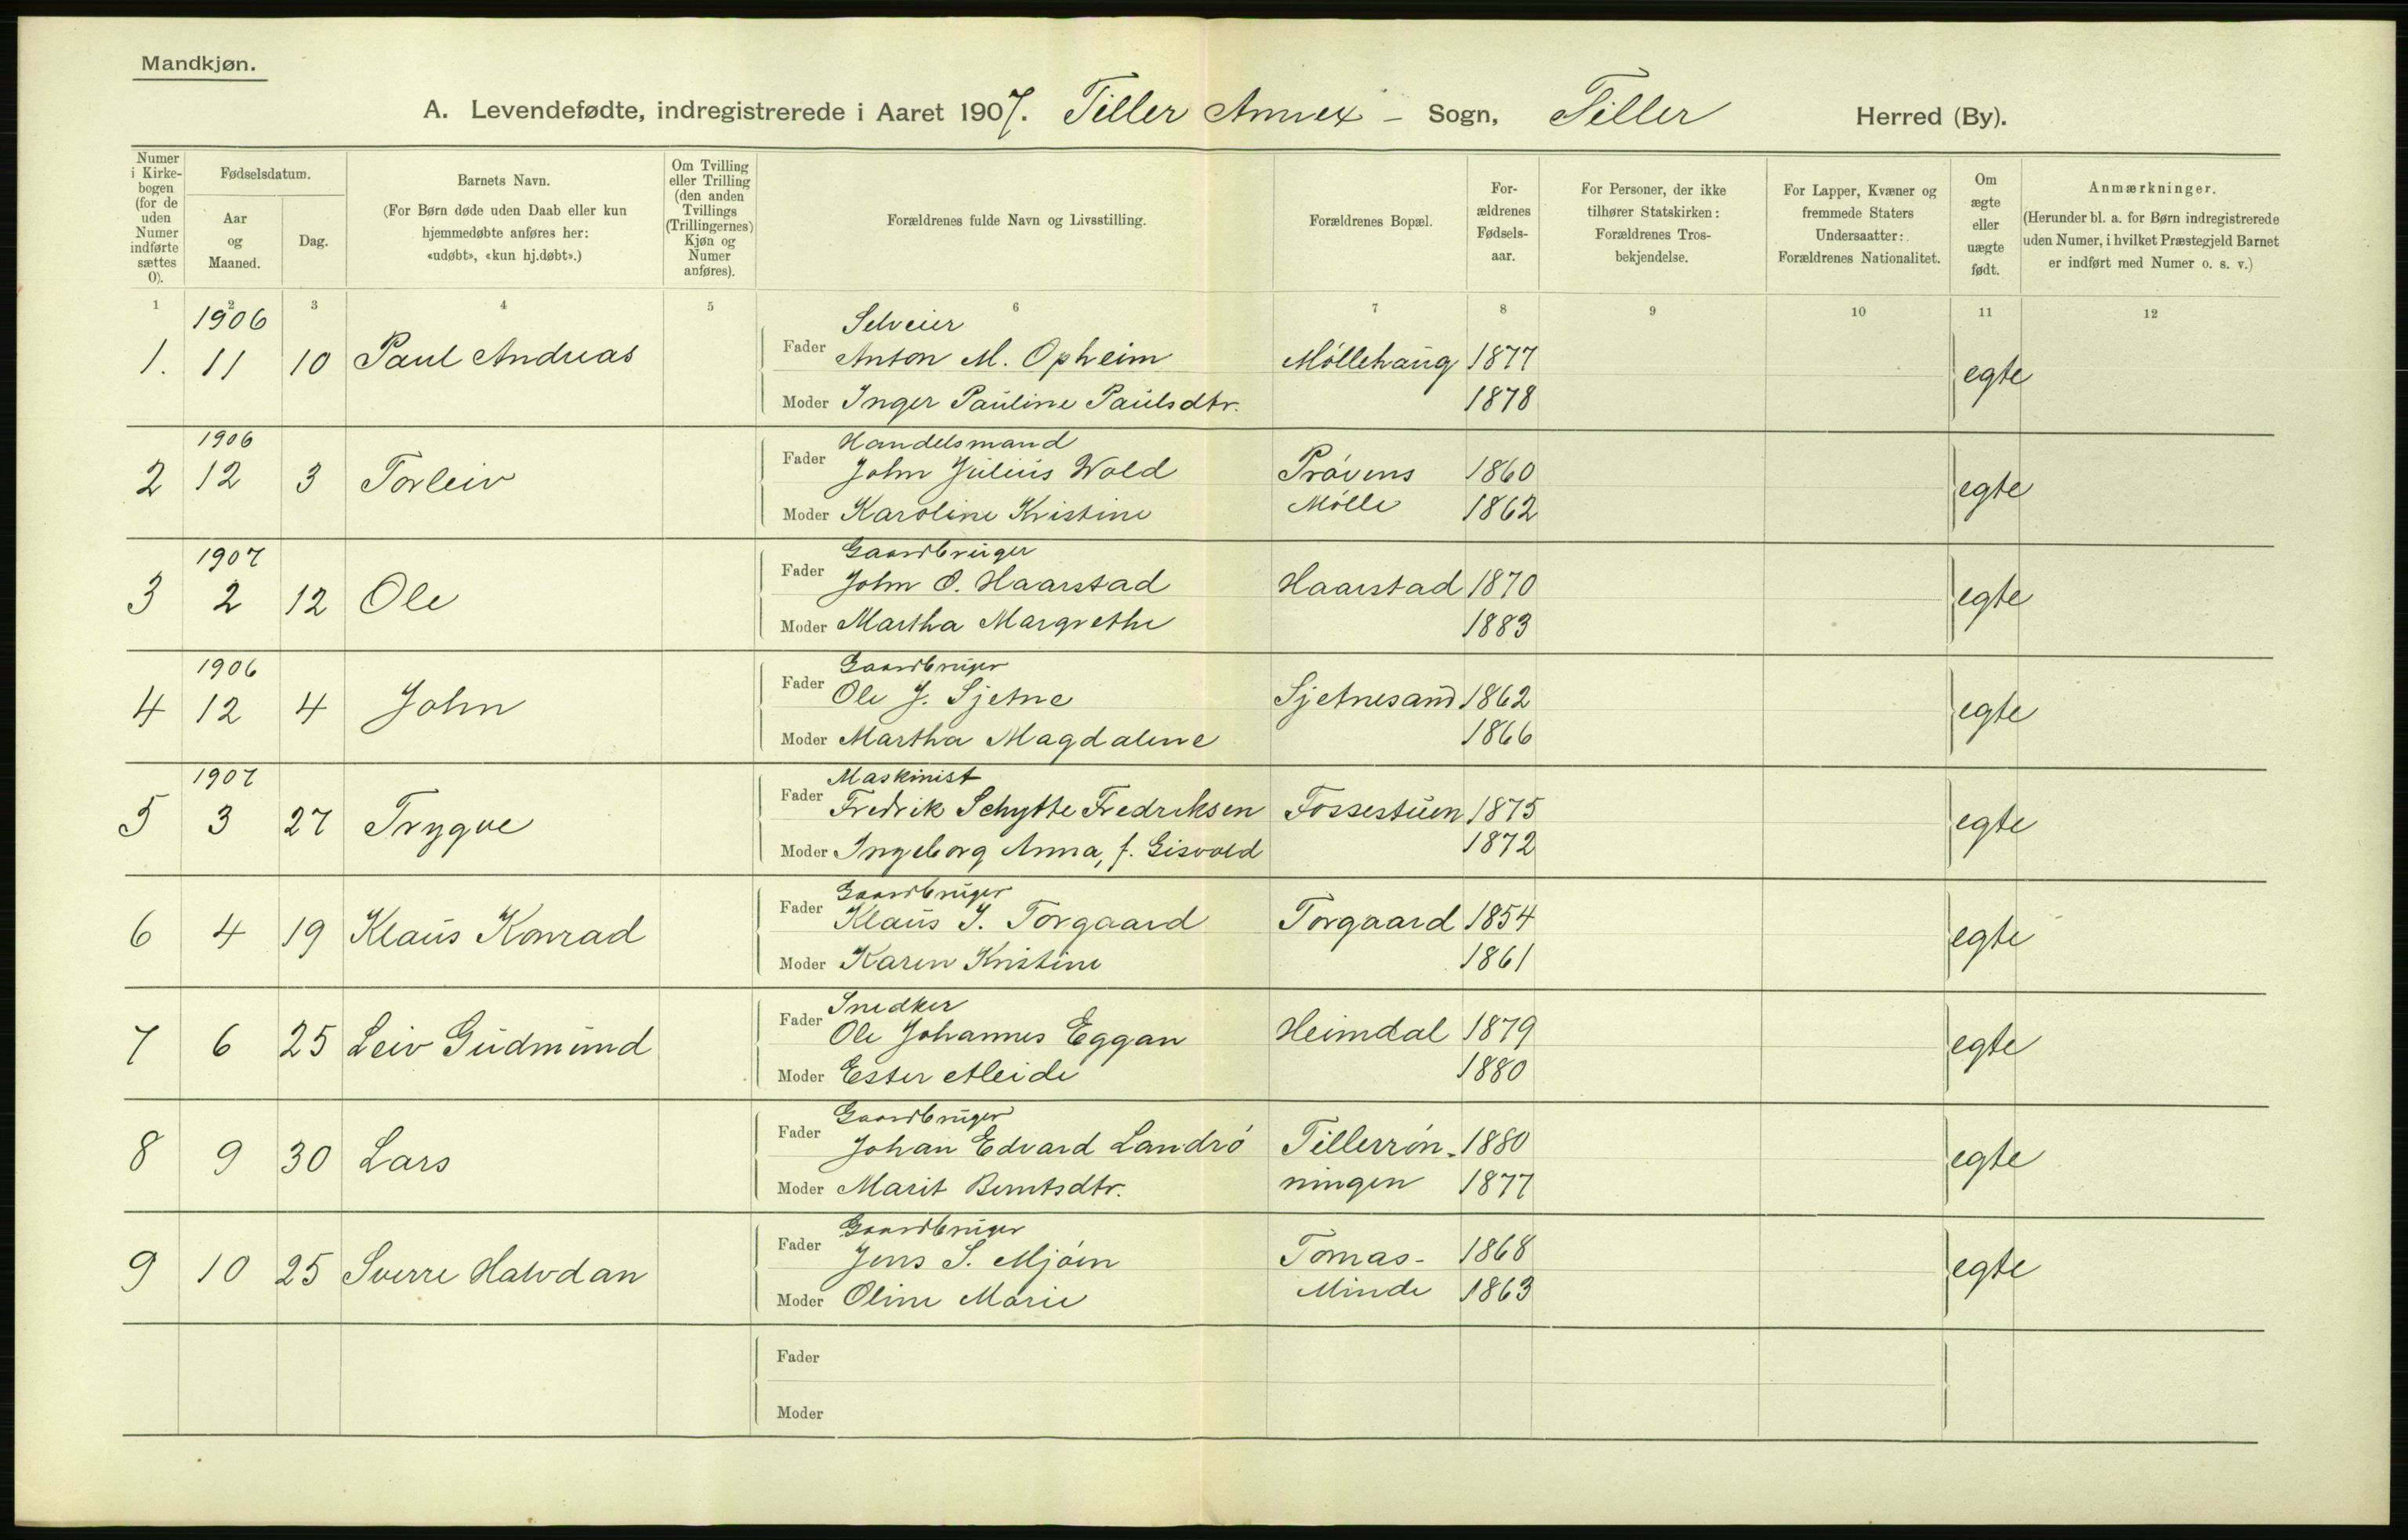 Mandkjøn.
A. Levendefødte, indregistrerede i Aaret 1907. Tiller Annex - Sogn, Tiller Herred (By).
Numer i Kirke-bogen (for de uden Numer indførte sættes 0).
Fødselsdatum.
Aar og Maaned.
Dag.
Barnets Navn.
(For Børn døde uden Daab eller kun
hjemmedøbte anføres her:
«udøbt», «kun hj.døbt».)
Om Tvilling eller Trilling (den anden Tvillings (Trillingernes) Kjøn og Numer anføres).
Forældrenes fulde Navn og Livsstilling.
Forældrenes Bopæl.
For-ældrenes Fødsels-aar.
For Personer, der ikke
tilhører Statskirken:
Forældrenes Tros-
bekjendelse.
For Lapper, Kvæner og
fremmede Staters
Undersaatter:
Forældrenes Nationalitet.
Om ægte eller uægte født.
Anmærkninger.
(Herunder bl. a. for Børn indregistrerede
uden Numer, i hvilket Præstegjeld Barnet
er indført med Numer o. s. v.)
1 2 3 4 5 6 7 8 9 10 11 12
1906 Selveier
1. 11 10 Paul Andreas Fader Anton M. Opheim Møllehaug 1877 egte
Moder Inger Pauline Paulsdtr. 1878
1906 Handelsmand
2 12 3 Torleiv Fader John Julius Wold Prøvens 1860 egte
Moder Karoline Kristine Mølle 1862
1907 Gaardbruger
3 2 12 Ole Fader John O. Haarstad Haarstad 1870 egte
Moder Martha Margrethe 1883
1906 Gaardbruger
4 12 4 John Fader Ole J. Sjetne Sjetnesand 1862 egte
Moder Martha Magdalene 1866
1907 Maskinist
5 3 27 Trygve Fader Fredrik Schytte Fredriksen Fossestuen 1875 egte
Moder Ingeborg Anna, f. Gisvold 1872
Gaardbruger
6 4 19 Klaus Konrad Fader Klaus J. Torgaard Torgaard 1854 egte
Moder Karen Kristine 1861
Snedker
7 6 25 Leiv Gudmund Fader Ole Johannes Eggan Heimdal 1879 egte
Moder Ester Aleide 1880
Gaardbruger
8 9 30 Lars Fader Johan Edvard Landrø Tillerrøn- 1880 egte
Moder Marit Berntsdtr. ningen 1877
Gaardbruger
9 10 25 Sverre Halvdan Fader Jens S. Mjøen Tomas- 1868 egte
Moder Oline Marie Minde 1863
Fader
Moder